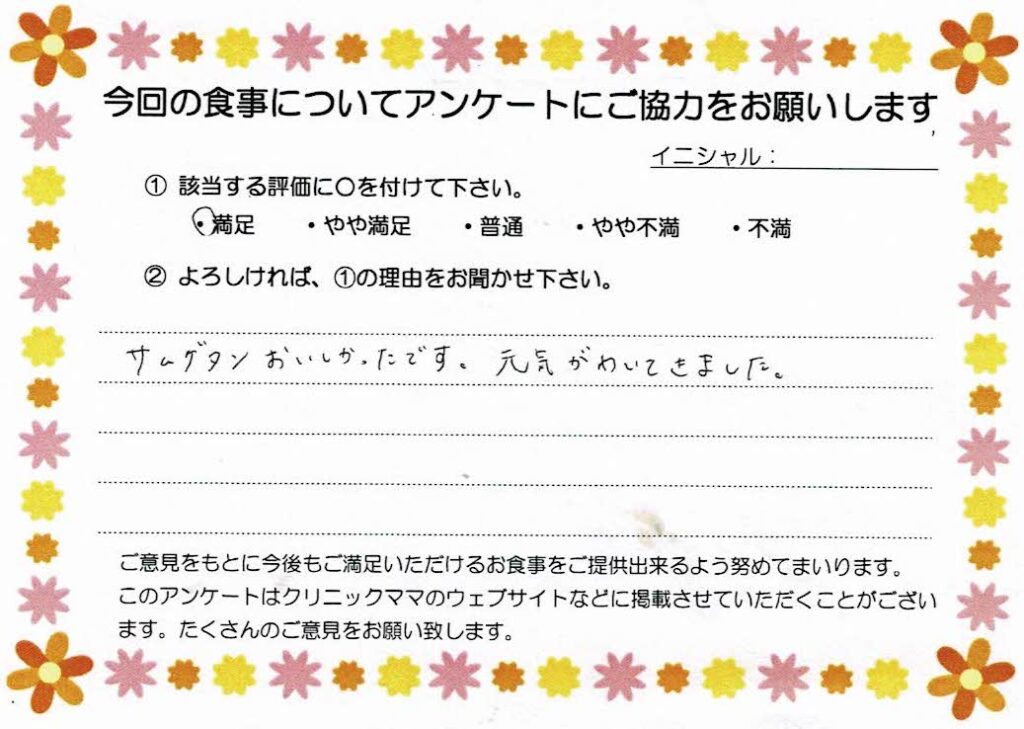 今回の食事についてアンケートにご協力をお願いします
イニシャル：
① 該当する評価に〇を付けて下さい。
・満足 ・やや満足 ・普通 ・やや不満 ・不満
② よろしければ、①の理由をお聞かせ下さい。
サムゲタンおいしかったです。元気がわいてきました。
ご意見をもとに今後もご満足いただけるお食事をご提供出来るよう努めてまいります。
このアンケートはクリニックママのウェブサイトなどに掲載させていただくことがござい
ます。たくさんのご意見をお願い致します。